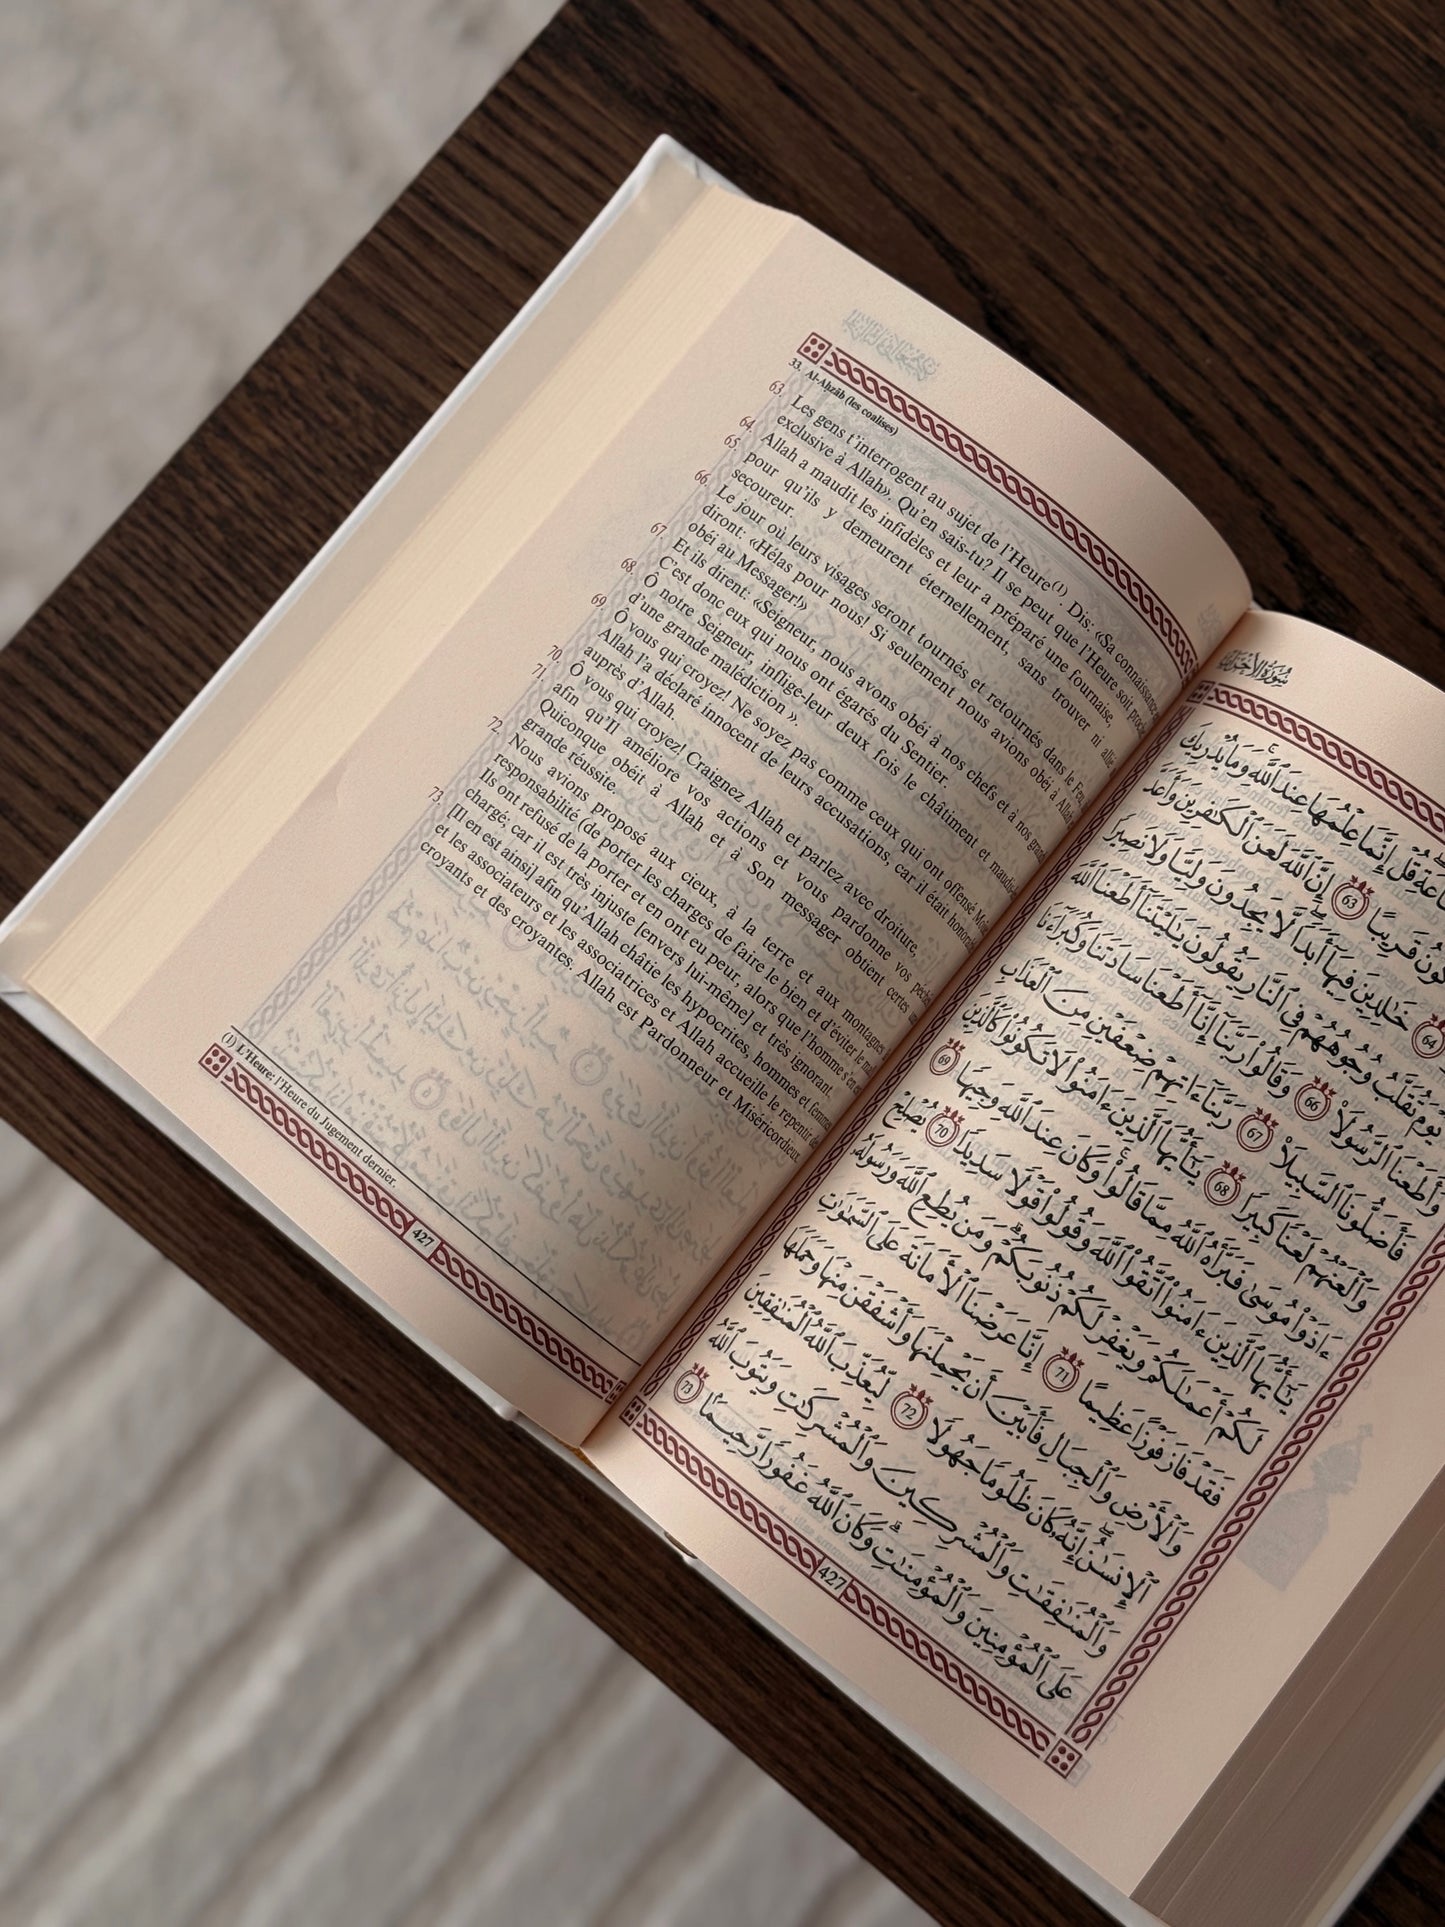 33. Al-Aḥzāb (les coalises)
63. Les gens t’interrogent au sujet de l’Heure(1). Dis: «Sa connaissance est
exclusive à Allah». Qu’en sais-tu? Il se peut que l’Heure soit proche
64. Allah a maudit les infidèles et leur a préparé une fournaise,
65. pour qu’ils y demeurent éternellement, sans trouver ni allié
secoureur.
66. Le jour où leurs visages seront tournés et retournés dans le Feu,
diront: «Hélas pour nous! Si seulement nous avions obéi à Allah
obéi au Messager!»
67. Et ils dirent: «Seigneur, nous avons obéi à nos chefs et à nos grands
C’est donc eux qui nous ont égarés du Sentier.
68. Ô notre Seigneur, inflige-leur deux fois le châtiment et maudis-
d’une grande malédiction ».
69. Ô vous qui croyez! Ne soyez pas comme ceux qui ont offensé Moïse
Allah l’a déclaré innocent de leurs accusations, car il était honorable
auprès d’Allah.
70. Ô vous qui croyez! Craignez Allah et parlez avec droiture,
71. afin qu’Il améliore vos actions et vous pardonne vos péchés
Quiconque obéit à Allah et à Son messager obtient certes une
grande réussite.
72. Nous avions proposé aux cieux, à la terre et aux montagnes
responsabilité (de porter les charges de faire le bien et d’éviter le mal
Ils ont refusé de la porter et en ont eu peur, alors que l’homme s’en est
chargé; car il est très injuste [envers lui-même] et très ignorant.
73. [Il en est ainsi] afin qu’Allah châtie les hypocrites, hommes et femmes
et les associateurs et les associatrices et Allah accueille le repentir des
croyants et des croyantes. Allah est Pardonneur et Miséricordieux.
(1) L’Heure: l’Heure du Jugement dernier.
427
سُورَةُ الأَحْزَابِ
قُلْ إِنَّمَا عِلْمُهَا عِندَ ٱللَّهِ وَمَا يُدْرِيكَ
قَرِيبًا ٦٣ إِنَّ ٱللَّهَ لَعَنَ ٱلْكَٰفِرِينَ وَأَعَدَّ
٦٤ خَٰلِدِينَ فِيهَآ أَبَدًا لَّا يَجِدُونَ وَلِيًّا وَلَا نَصِيرًا
يَوْمَ تُقَلَّبُ وُجُوهُهُمْ فِى ٱلنَّارِ يَقُولُونَ يَٰلَيْتَنَآ أَطَعْنَا ٱللَّهَ
وَأَطَعْنَا ٱلرَّسُولَا۠ ٦٦ وَقَالُوا۟ رَبَّنَآ إِنَّآ أَطَعْنَا سَادَتَنَا وَكُبَرَآءَنَا
فَأَضَلُّونَا ٱلسَّبِيلَا۠ ٦٧ رَبَّنَآ ءَاتِهِمْ ضِعْفَيْنِ مِنَ ٱلْعَذَابِ
وَٱلْعَنْهُمْ لَعْنًا كَبِيرًا ٦٨ يَٰٓأَيُّهَا ٱلَّذِينَ ءَامَنُوا۟ لَا تَكُونُوا۟ كَٱلَّذِينَ
ءَاذَوْا۟ مُوسَىٰ فَبَرَّأَهُ ٱللَّهُ مِمَّا قَالُوا۟ ۚ وَكَانَ عِندَ ٱللَّهِ وَجِيهًا ٦٩
يَٰٓأَيُّهَا ٱلَّذِينَ ءَامَنُوا۟ ٱتَّقُوا۟ ٱللَّهَ وَقُولُوا۟ قَوْلًا سَدِيدًا ٧٠ يُصْلِحْ
لَكُمْ أَعْمَٰلَكُمْ وَيَغْفِرْ لَكُمْ ذُنُوبَكُمْ ۗ وَمَن يُطِعِ ٱللَّهَ وَرَسُولَهُۥ
فَقَدْ فَازَ فَوْزًا عَظِيمًا ٧١ إِنَّا عَرَضْنَا ٱلْأَمَانَةَ عَلَى ٱلسَّمَٰوَٰتِ
وَٱلْأَرْضِ وَٱلْجِبَالِ فَأَبَيْنَ أَن يَحْمِلْنَهَا وَأَشْفَقْنَ مِنْهَا وَحَمَلَهَا
ٱلْإِنسَٰنُ ۖ إِنَّهُۥ كَانَ ظَلُومًا جَهُولًا ٧٢ لِّيُعَذِّبَ ٱللَّهُ ٱلْمُنَٰفِقِينَ
وَٱلْمُنَٰفِقَٰتِ وَٱلْمُشْرِكِينَ وَٱلْمُشْرِكَٰتِ وَيَتُوبَ ٱللَّهُ
عَلَى ٱلْمُؤْمِنِينَ وَٱلْمُؤْمِنَٰتِ ۗ وَكَانَ ٱللَّهُ غَفُورًا رَّحِيمًۢا ٧٣
427